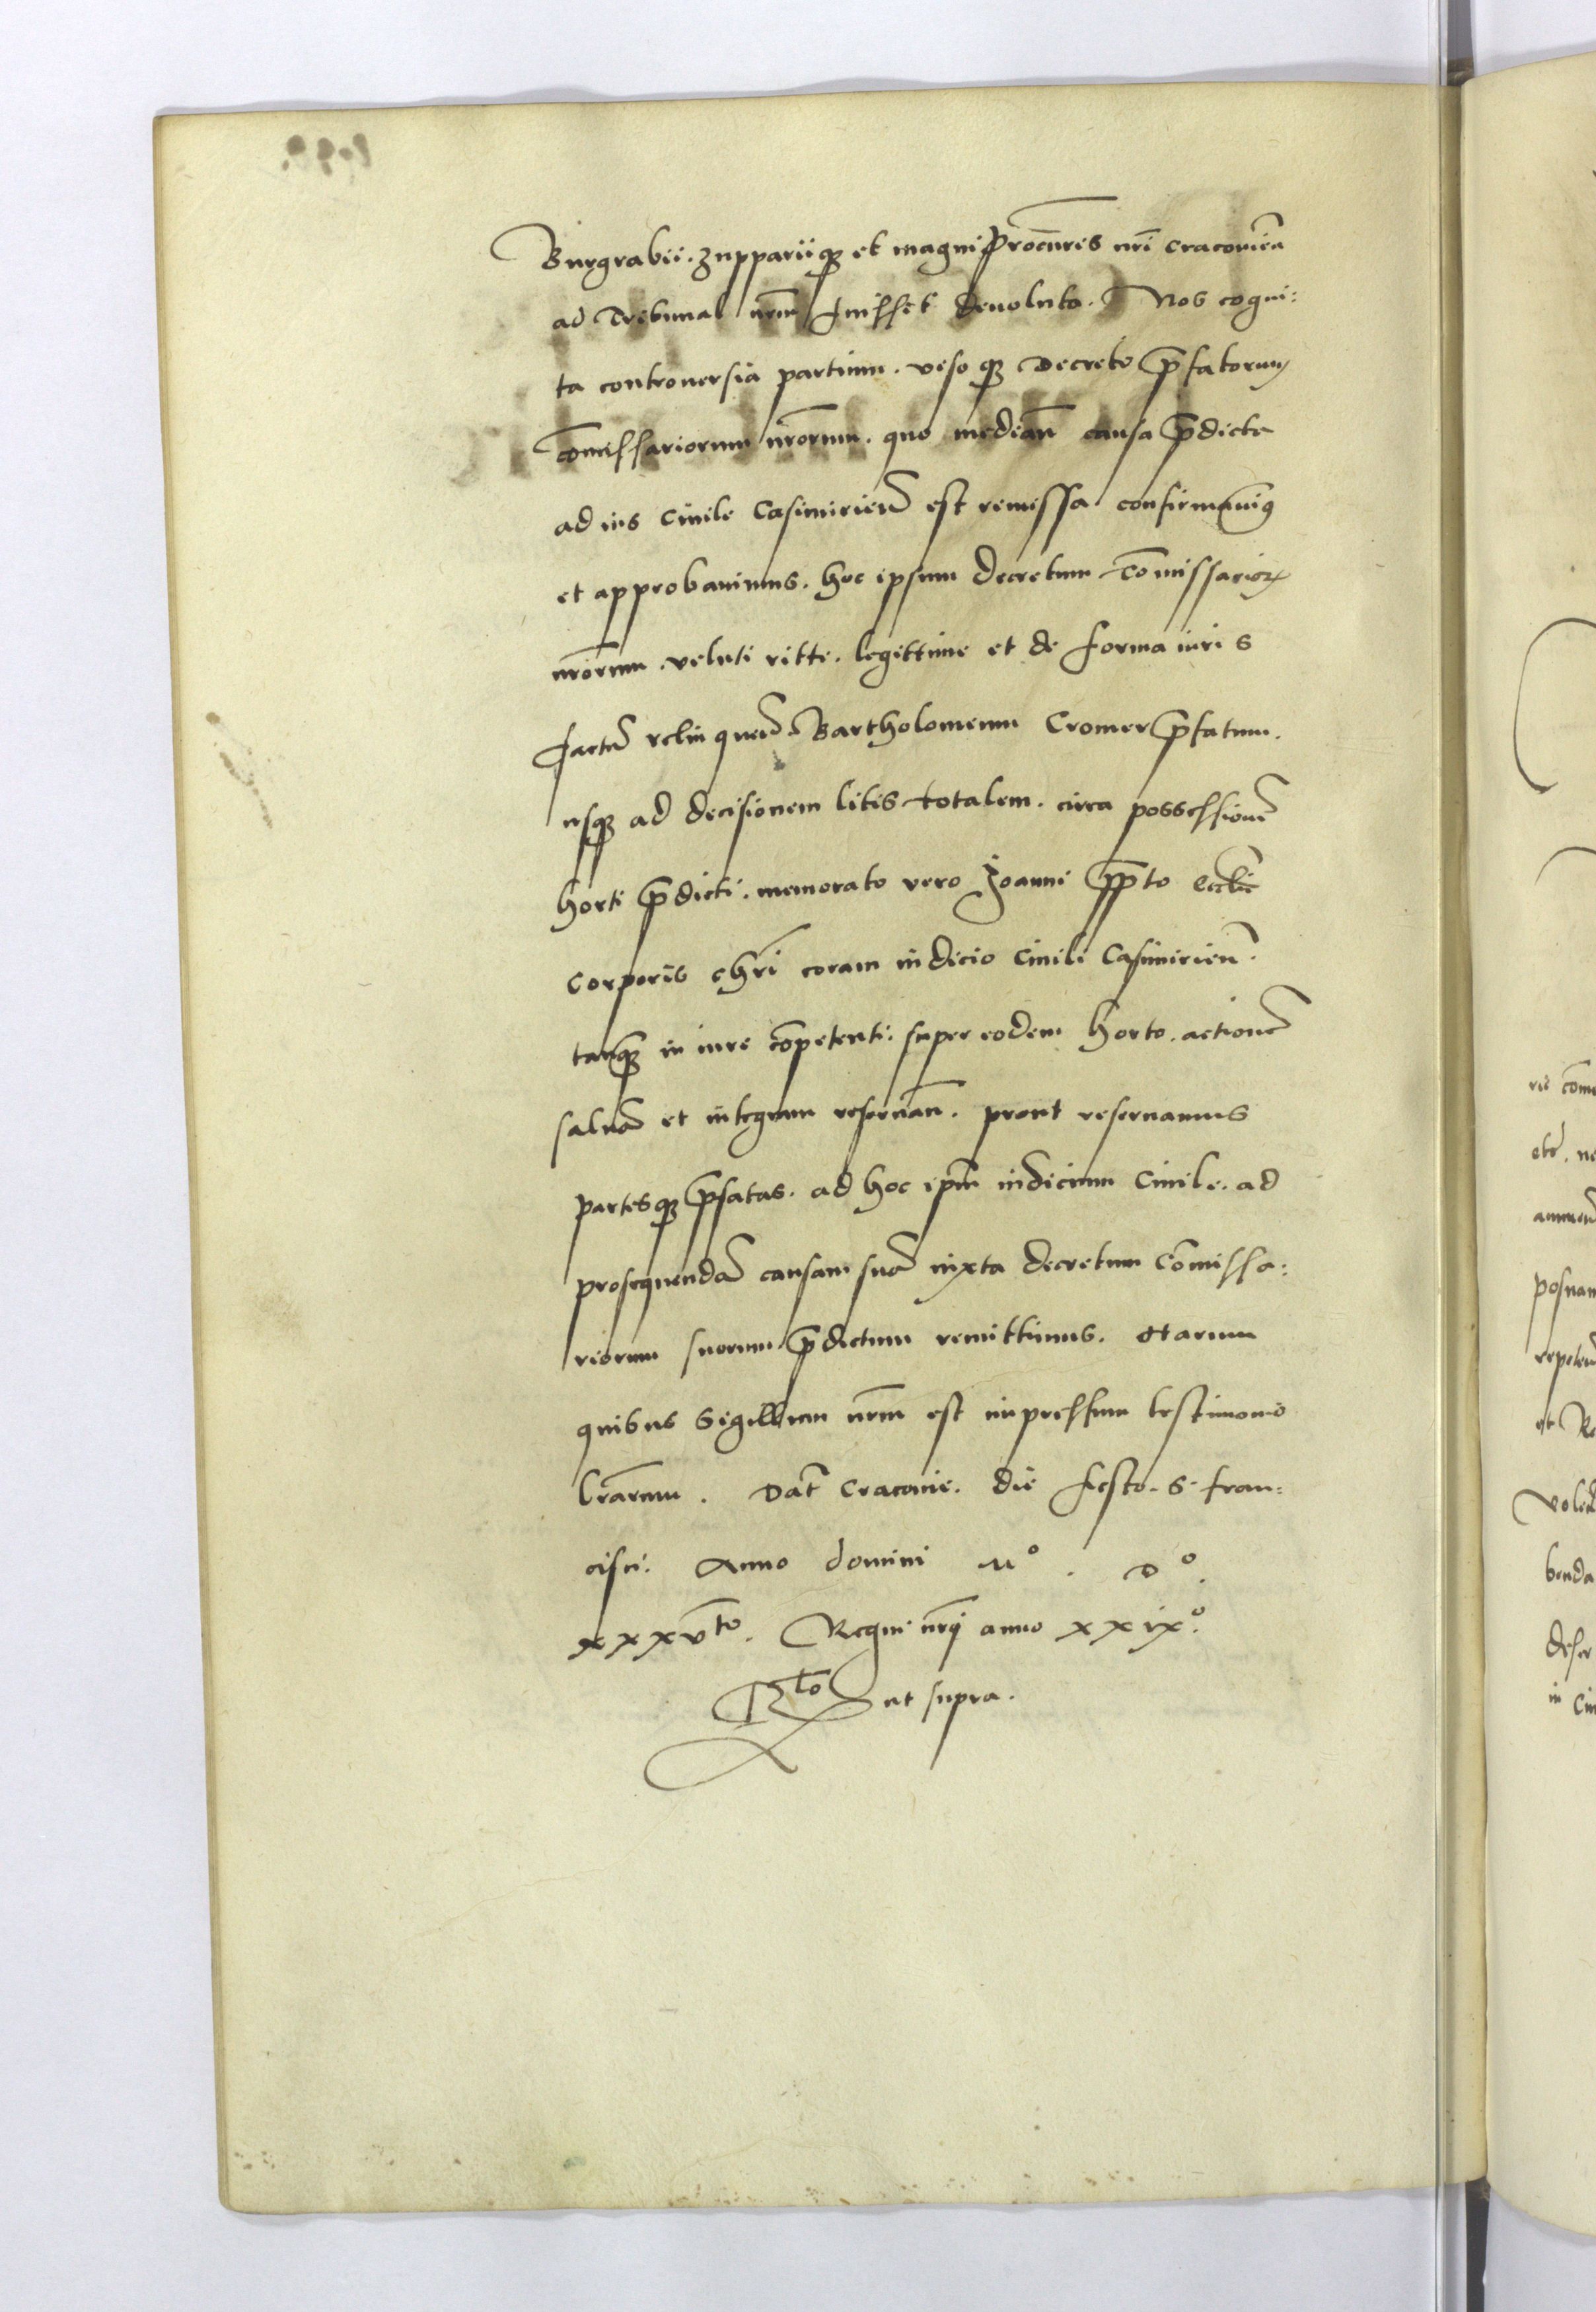 Burgrabii. zuppariiqꝫ et magni procūres nr̄i cracovień
ad Tribunal nr̄m fuisset devoluta. Nos cogni:
ta controversia partium. visoqꝫ decreto p̄fatorum
Com̄issariorum nr̄orum. quo median̄ causa p̄dicta
ad ius Civile Casimirien̄ est remissa confirmavimꝰ
et approbavimus. hoc ipsum decretum Com̄issarioꝝ
nr̄orum. veluti ritte. legittime et de forma iuris
factū relinquen̄. Bartholomeum Cromer p̄fatum.
usqꝫ ad decisionem litis totalem. circa possessionē
horti p̄dicti. memorato vero Joanni p̄p̄to Eccl̄ie
corporis chr̄i coram iudicio Civili Casimirien̄.
tanqꝫ in iure cōpetenti. super eodem horto. actionē
salvā et integram reservan̄. prout reservamus
partesqꝫ p̄fatas. ad hoc ip̄m iudicium Civile. ad
prosequendā causam suā iuxta decretum Com̄issa:
riorum suorum p̄dictum remittimus. Harum
quibus Sigillum nr̄m est impressum testimonio
lr̄arum. Dat̄ Cracovie. die festo. S. fran=
cisci. Anno domini M°. D°.
xxxvto. Regni nr̄i anno xxix°.
Rto ut supra.